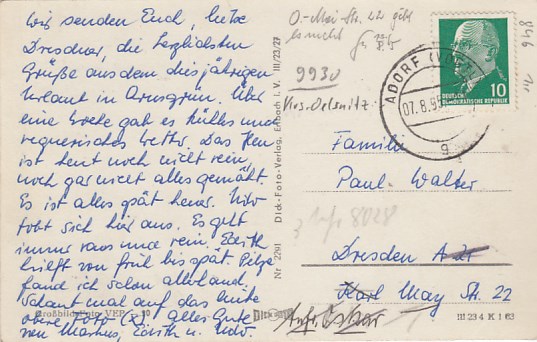 Wir senden Euch, liebe
Dresdner, die herzlichsten
Grüße aus dem diesjährigen
Urlaub in Arnsgrün. Über
eine Woche gab es kühles und
regnerisches Wetter. Das Heu
ist heut noch nicht rein,
noch gar nicht alles gemäht.
Es ist alles spät heuer. Udo
tobt sich hier aus. Es geht
immer raus und rein. Edith
hilft von früh bis spät. Pilze
fand ich schon allerhand.
Schaut mal auf das bunte
obere Foto (x). Alles Gute
von Markus, Edith u. Udo.
Großbildfoto VEB
Nr. 2291 Dick-Foto-Verlag, Erlbach i. V. III/23/27
DICK
O.-Mai Str. 22 gibt
es nicht
9930
Krs. Oelsnitz
ADORF (VOGTL)
07.8.65
a
DEUTSCHE
DEMOKRATISCHE REPUBLIK
10
846
Familie
Paul Walter
8028
Dresden
Karl May Str. 22
III 23 4 K 1 63